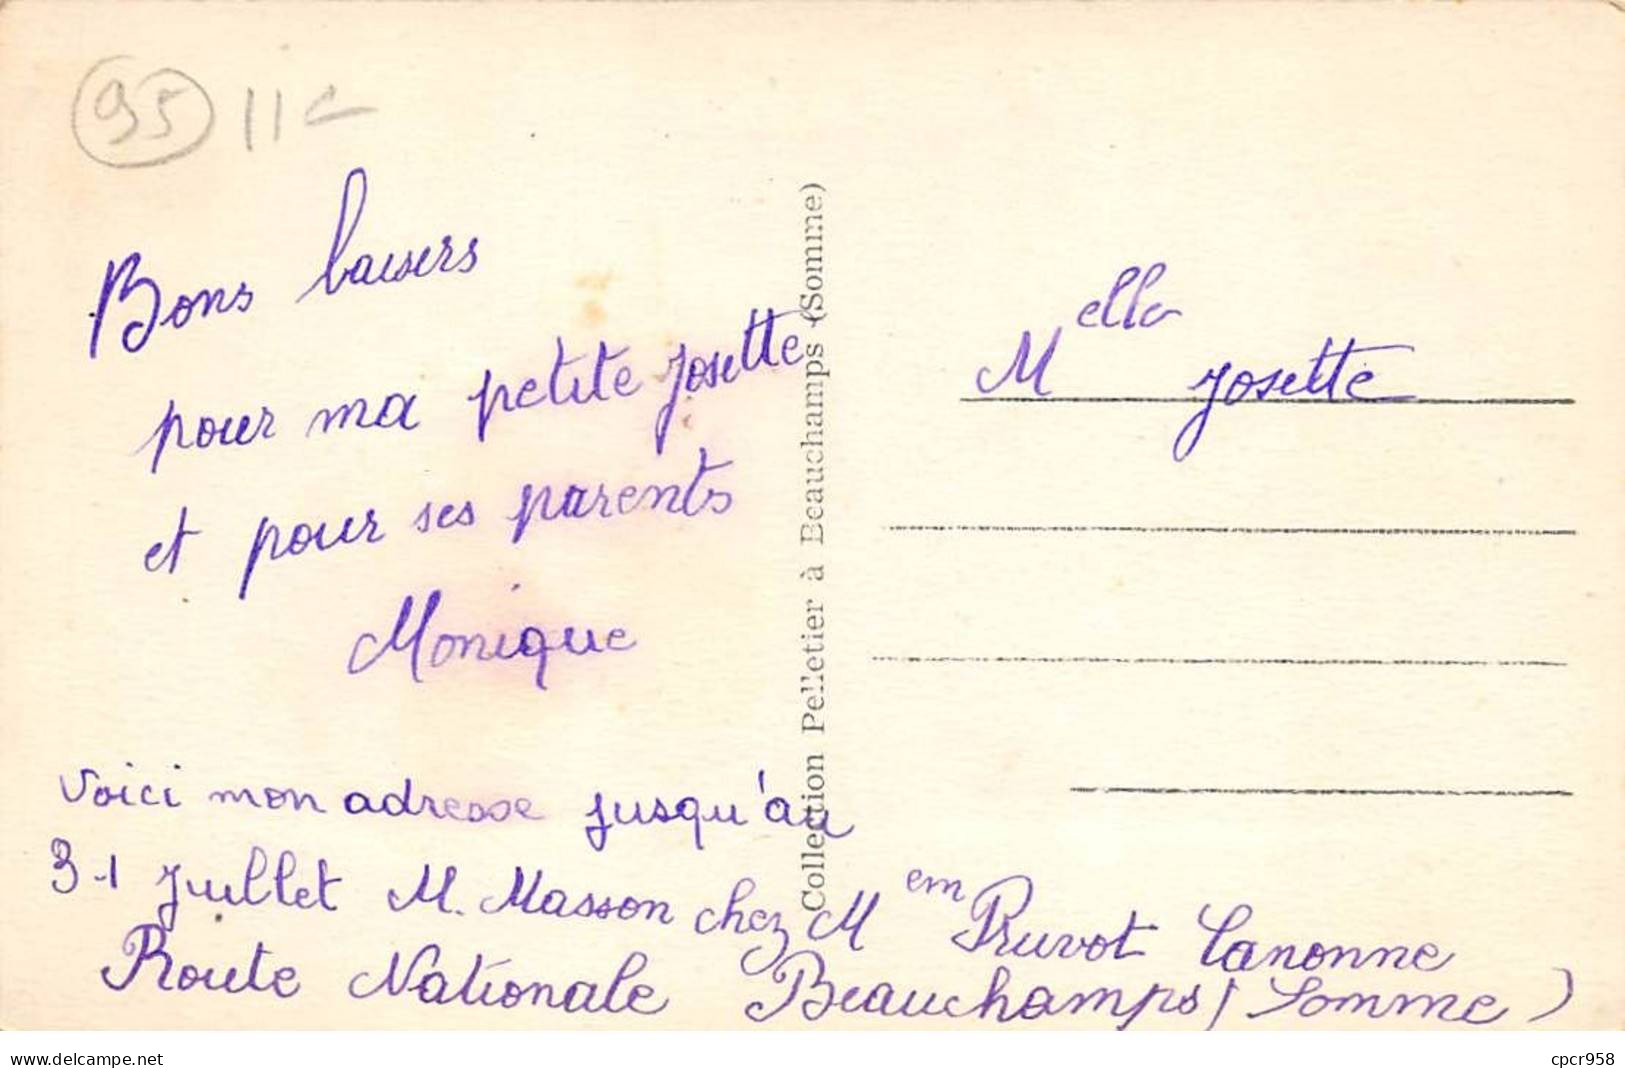 95 11
Bons baisers
pour ma petite Josette
et pour ses parents
Monique
voici mon adresse jusqu'au
31 Juillet M. Masson chez M em Pruvot Canonne
Route Nationale Beauchamps (Somme)
Collection Pelletier à Beauchamps (Somme)
M ella Josette
www.delcampe.net
cpcr958